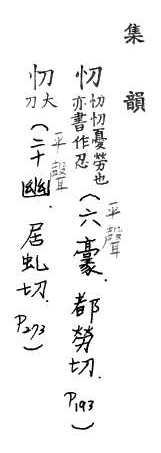 集韻
忉 忉忉憂勞也
亦書作忍
(平聲 六豪. 都勞切. P193)
忉 大刀
(平聲 二十幽. 居虬切. P273)